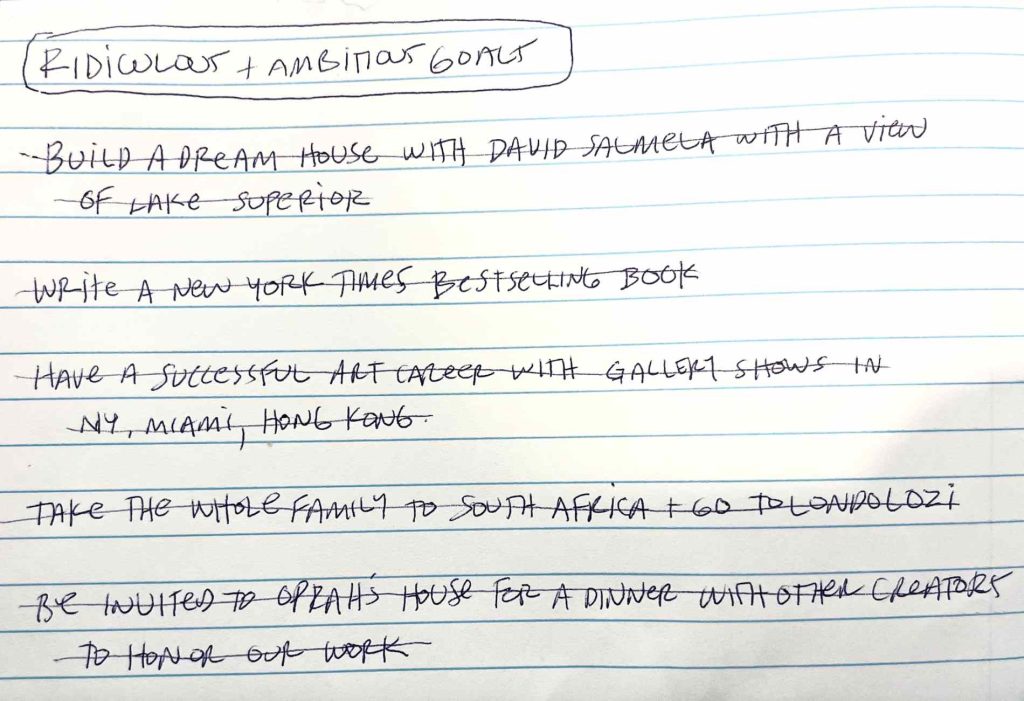 RIDICULOUS + AMBITIOUS GOALS
BUILD A DREAM HOUSE WITH DAVID SALMELA WITH A VIEW
OF LAKE SUPERIOR
WRITE A NEW YORK TIMES BESTSELLING BOOK
HAVE A SUCCESSFUL ART CAREER WITH GALLERY SHOWS IN
NY, MIAMI, HONG KONG.
TAKE THE WHOLE FAMILY TO SOUTH AFRICA + GO TO LONDOLOZI
BE INVITED TO OPRAH'S HOUSE FOR A DINNER WITH OTHER CREATORS
TO HONOR OUR WORK